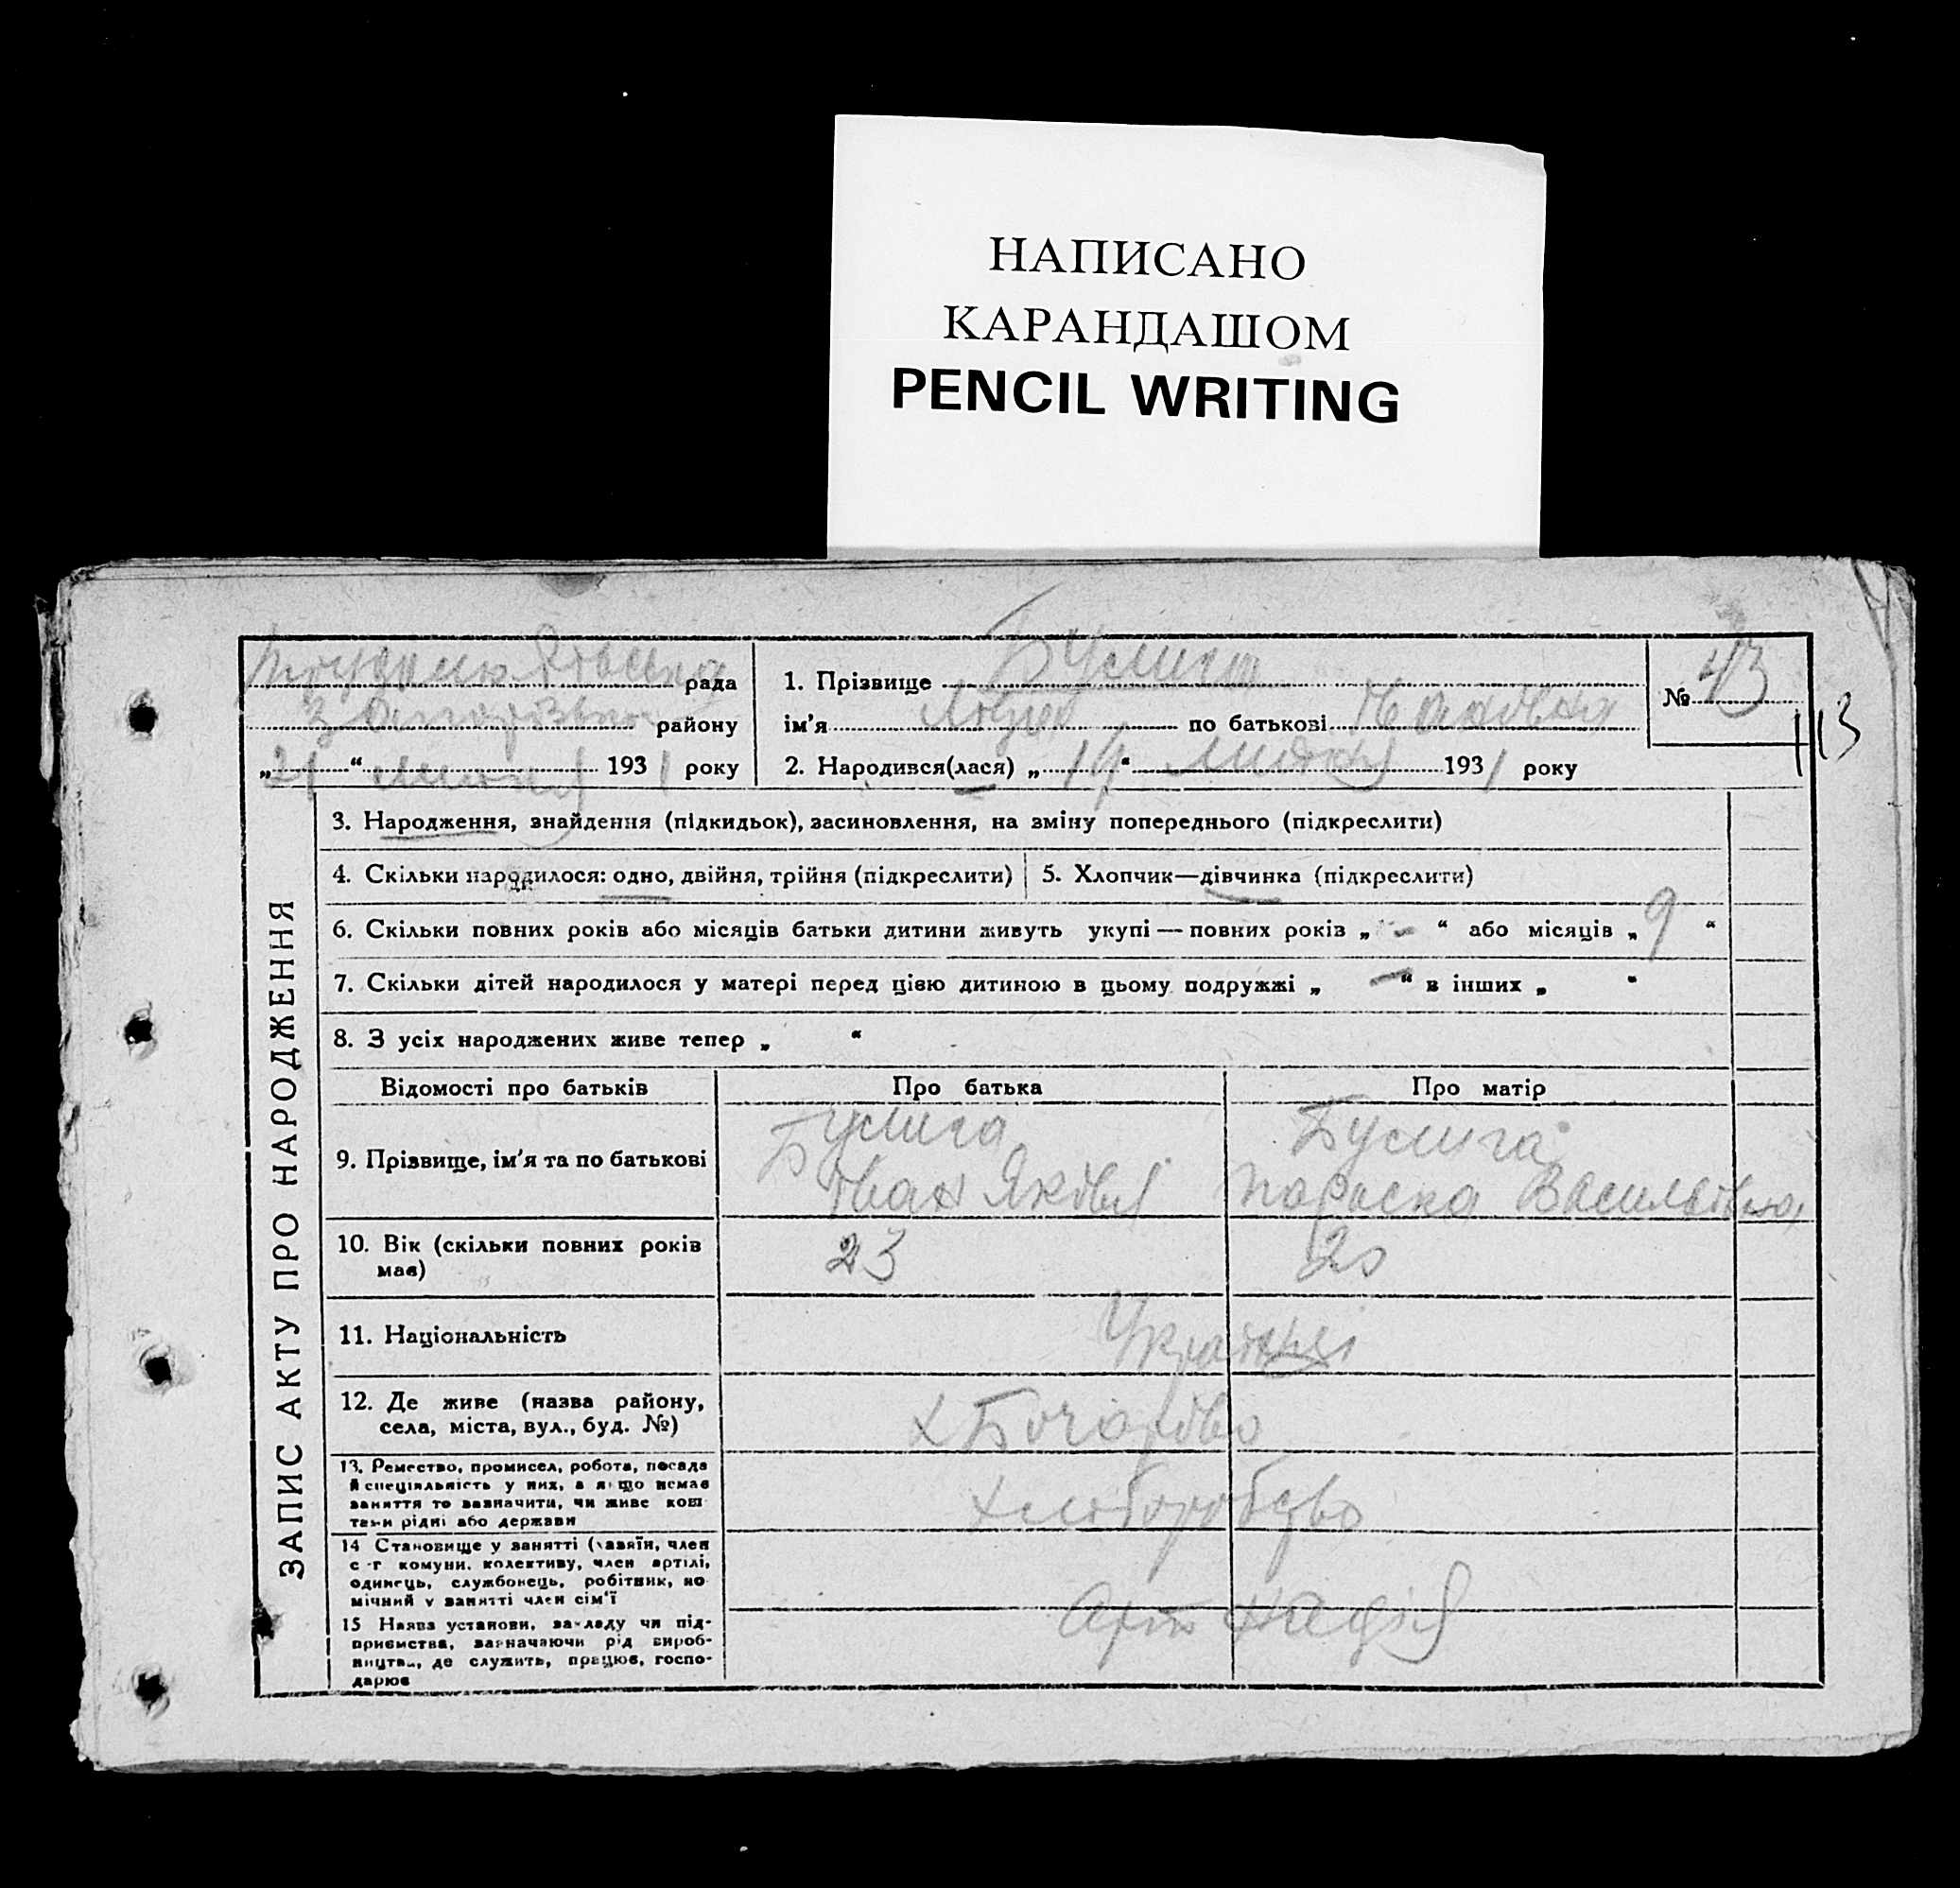 НАПИСАНО
КАРАНДАШОМ
PENCIL WRITING
рада
району
„21“ 1931 року
1. Прізвище Булига
ім'я по батькові Іванівна
2. Народився(лася) „14“ 1931 року
№ 43
113
ЗАПИС АКТУ ПРО НАРОДЖЕННЯ
3. Народження, знайдення (підкидьок), засиновлення, на зміну попереднього (підкреслити)
4. Скільки народилося: одно, двійня, трійня (підкреслити)
5. Хлопчик—дівчинка (підкреслити)
6. Скільки повних років або місяців батьки дитини живуть укупі — повних років „ - “ або місяців „ 9 “
7. Скільки дітей народилося у матері перед цією дитиною в цьому подружжі „ — “ в інших „ “
8. З усіх народжених живе тепер „ “
Відомості про батьків
Про батька
Про матір
9. Прізвище, ім'я та по батькові
Булига
Іван Яківл
Булига
Параска Василівна
10. Вік (скільки повних років
має)
23
20
11. Національність
Українці
12. Де живе (назва району,
села, міста, вул., буд. №)
х Бочарово
13. Ремество, промисел, робота, посада
й спеціяльність у них, а якщо немає
заняття то зазначити, чи живе кош
тами рідні або держави
хліборобство
14 Становище у занятті (хазяїн, член
с-г комуни, колективу, член артілі,
одинець, службонець, робітник, по
мічний у занятті член сім'ї
15 Назва установи, закладу чи під-
приємства, зазначаючи рід вироб-
ництва, де служить, працює, госпо-
дарює
Арт Надія